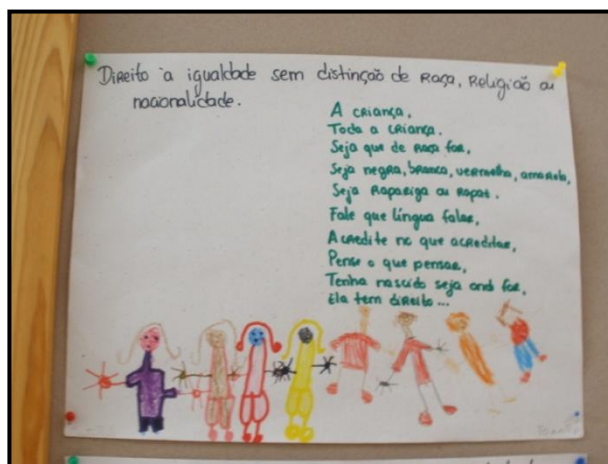 Direito à igualdade sem distinção de raça, religião ou
nacionalidade.
A criança,
Toda a criança.
Seja que de raça for,
Seja negra, branca, vermelha, amarela,
Seja rapariga ou rapaz.
Fale que língua falar,
Acredite no que acreditar,
Pense o que pensar,
Tenha nascido seja ond for,
Ela tem direito...